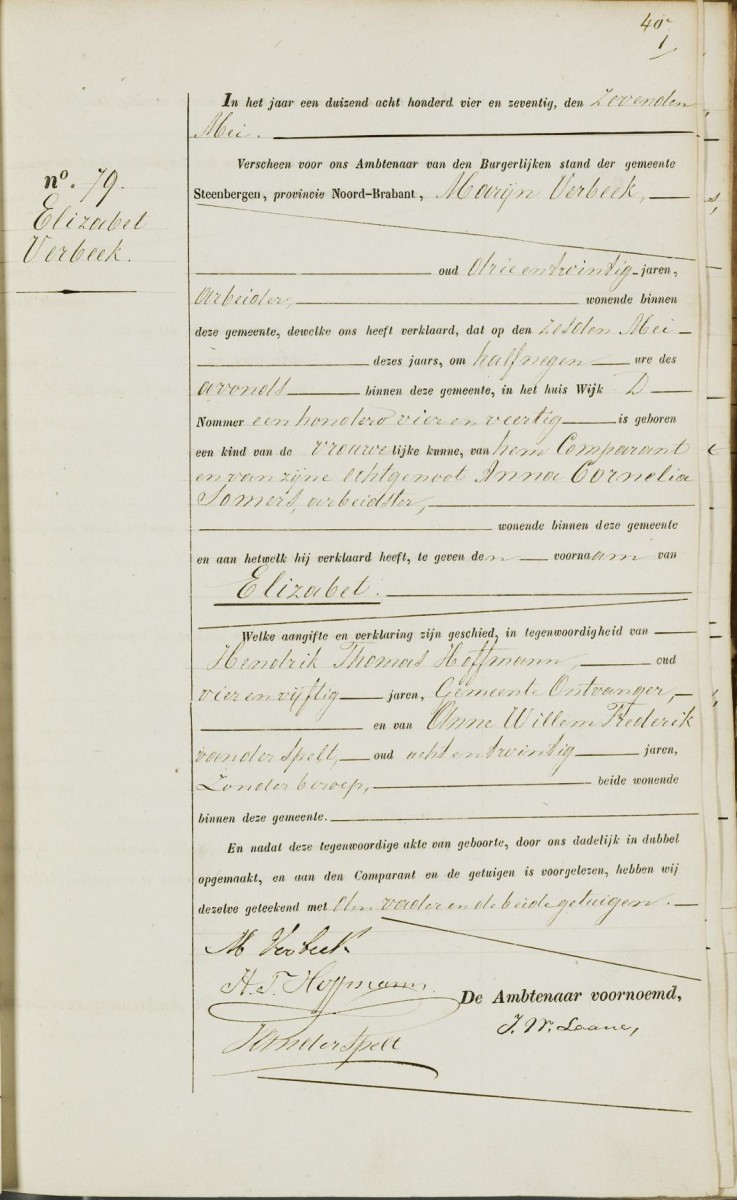 40
1
In het jaar een duizend acht honderd vier en zeventig, den Zevenden
Mei.
Verscheen voor ons Ambtenaar van den Burgerlijken stand der gemeente
Steenbergen, provincie Noord-Brabant, Marijn Verbeek,
n°. 79.
Elizabet
Verbeek.
oud drie en twintig jaren,
arbeider, wonende binnen
deze gemeente, dewelke ons heeft verklaard, dat op den zesden Mei
dezes jaars, om half negen ure des
avonds binnen deze gemeente, in het huis Wijk D
Nommer een honderd vier en veertig is geboren
een kind van de vrouwelijke kunne, van hem Comparant
en van zijne echtgenoot Anna Cornelia
Somers, arbeidster,
wonende binnen deze gemeente
en aan hetwelk hij verklaard heeft, te geven den voornaam van
Elizabet.
Welke aangifte en verklaring zijn geschied, in tegenwoordigheid van
Hendrik Thomas Hoffmann, oud
vier en vijftig jaren, Gemeente Ontvanger,
en van Anne Willem Frederik
van der Spelt, oud acht en twintig jaren,
Zonder beroep, beide wonende
binnen deze gemeente.
En nadat deze tegenwoordige akte van geboorte, door ons dadelijk in dubbel
opgemaakt, en aan den Comparant en de getuigen is voorgelezen, hebben wij
dezelve geteekend met den vader en de beide getuigen.
M Verbeek
H. T. Hoffmann.
De Ambtenaar voornoemd,
J. W. Laane,
van der Spelt